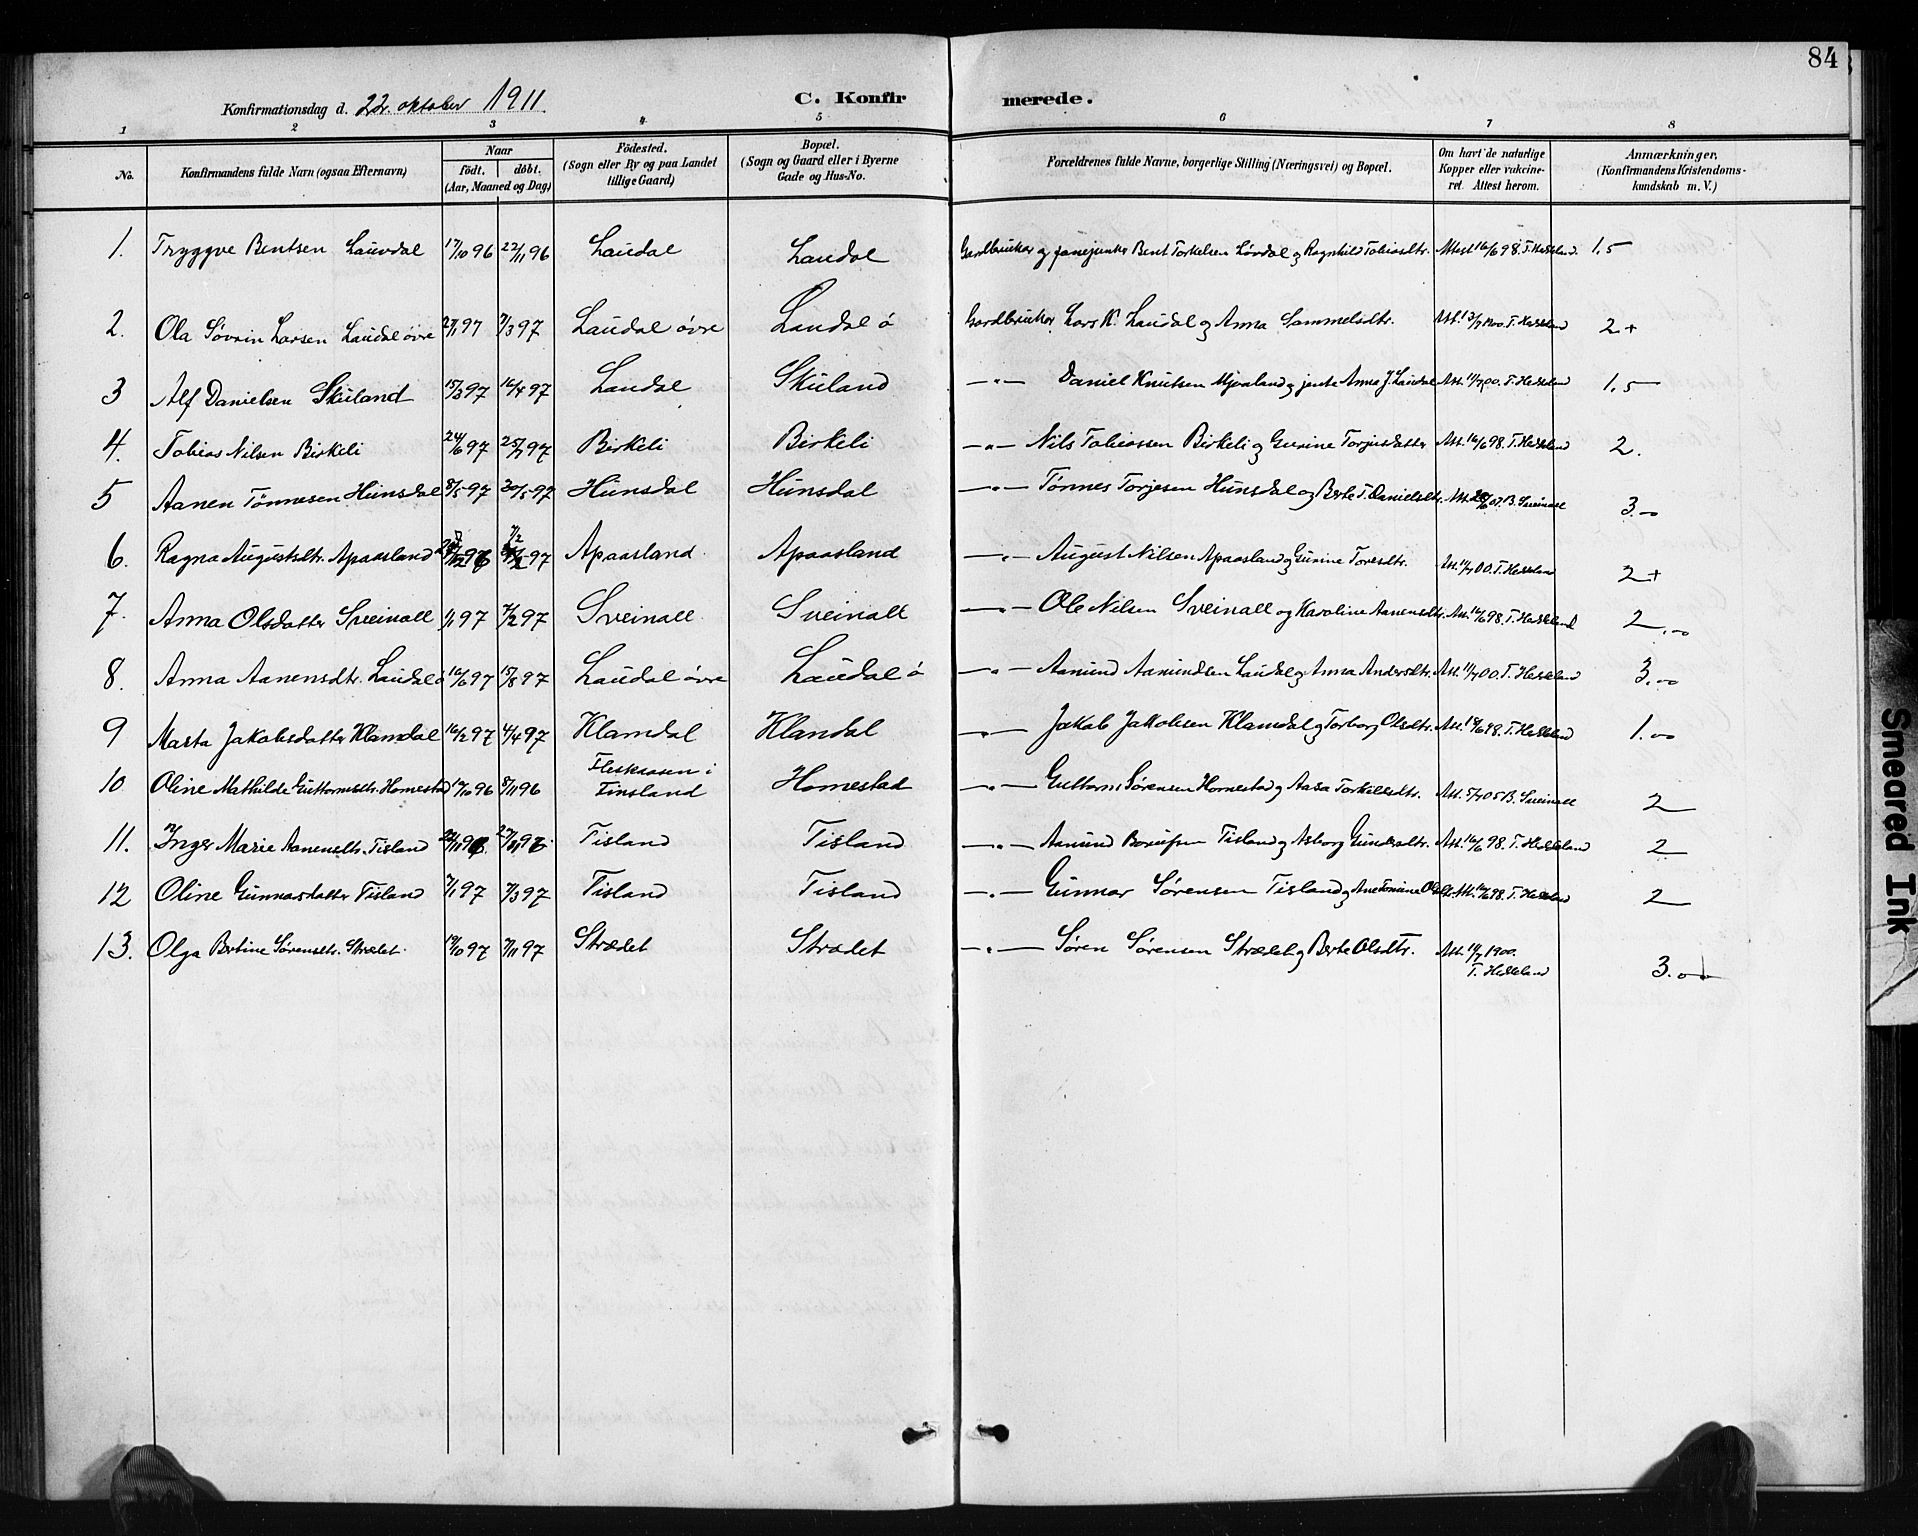 84
Konfirmationsdag d. 22. oktober 1911.
C. Konfirmerede.
1 2 3 4 5 6 7 8
No.
Konfirmandens fulde Navn (ogsaa Efternavn)
Naar
födt. döbt.
(Aar, Maaned og Dag)
Födested.
(Sogn eller By og paa Landet
tillige Gaard)
Bopæl.
(Sogn og Gaard eller i Byerne
Gade og Hus-No.
Forældrenes fulde Navne, borgerlige Stilling (Næringsvei) og Bopæl.
Om havt de naturlige
Kopper eller vakcine-
ret. Attest herom.
Anmærkninger.
(Konfirmandens Kristendoms-
kundskab m. V.)
1. Tryggve Bentsen Lauvdal 17/10 96 22/11 96 Laudal Laudal Gardbruker og fanejunker Bent Torkelsen Løvdal og Ragnhild Tobiasdtr. Attest 16/6 98. T. Heskeland. 1,5
2. Ola Søvrin Larsen Laudal øvre 27/1 97 7/3 97 Laudal øvre Laudal ø Gardbruker Lars K. Laudal og Anna Sammelsdtr. Att. 13/7 1900. T. Heskeland 2+
3 Alf Danielsen Skuland 15/3 97 16/4 97 Laudal Skuland —"— Daniel Knutsen Mjvaland og jente Anna J. Laudal Att. 11/7 00. T. Heskeland 1,5
4. Tobias Nilsen Birkeli 24/6 97 25/7 97 Birkeli Birkeli —"— Nils Tobiassen Birkeli og Gurine Torjusdatter Att. 16/6 98. T. Heskeland 2.
5 Aanen Tønnesen Hunsdal 8/5 97 30/5 97 Hunsdal Hunsdal —"— Tønnes Torjesen Hunsdal og Berte T. Danielsdtr. B. Sveinall 3.00
6. Ragna Augustsdtr. Apaasland 7/2 97 Apaasland. Apaasland —"— August Nilsen Apaasland og Gunine Toresdtr. Att. 11/7 00. T. Heskeland 2+
7. Anna Olsdatter Sveinall 1/1 97 7/2 97 Sveinall Sveinall —"— Ole Nilsen Sveinall og Karoline Aanensdtr. Att. 16/6 98. T. Heskeland 2.00
8. Anna Aanensdtr. Laudal ø 16/6 97 15/8 97 Laudal øvre Laudal ø —"— Aamund Aamundsen Laudal og Anna Andersdtr. Att. 11/7 00. T. Heskeland 3.00
9 Marta Jakobsdatter Klamdal 16/2 97 4/4 97 Klamdal Klandal —"— Jakob Jakobsen Klamdal og Torborg Olsdtr. Att. 16/6 98. T. Heskeland 1.00
10 Oline Mathilde Guttormsdtr. Homestad 10/10 96 8/11 96 Fleskaasen i
Finsland Homestad —"— Guttorm Sørensen Homestad og Aasa Torkelsdtr. Att. 5/7 05 B. Sveinall 2
11. Inger Marie Aanensdtr. Tisland 96 96 Tisland Tisland —"— Aanund Tisland og Asborg Gundersdtr. Att. 16/6 98. T. Heskeland 2
12 Oline Gunnarsdatter Tisland 7/1 97 7/3 97 Tisland Tisland —"— Gunnar Sørensen Tisland og Ane Tomine Att. 16/6 98. T. Heskeland 2
13. Olga Bertine Sørensdtr. Strædet 19/10 97 7/11 97 Strædet Strædet —"— Søren Sørensen Strædet og Berte Olsdtr. Att. 11/7 1900.
T. Heskeland 3.00
Smeared Ink